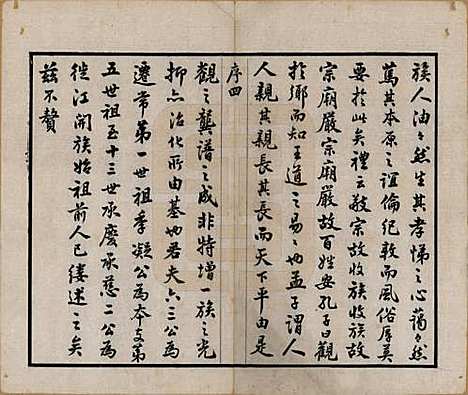 族人油々然生其孝悌之心藹々然
篤其本原之誼倫紀敦而風俗厚莫
要於此矣禮云敬宗故收族收族故
宗廟嚴宗廟嚴故百姓安孔子曰觀
於鄉而知王道之易之也孟子謂人
人親其親長其長而天下平由是
序四
觀之龔譜之成非特增一族之光
抑亦治化所由基也若夫六三公為
遷常第一世祖季凝公為本支第
五世祖至十三世承慶承慈二公為
徙江開族始祖前人已縷述之矣
茲不贅